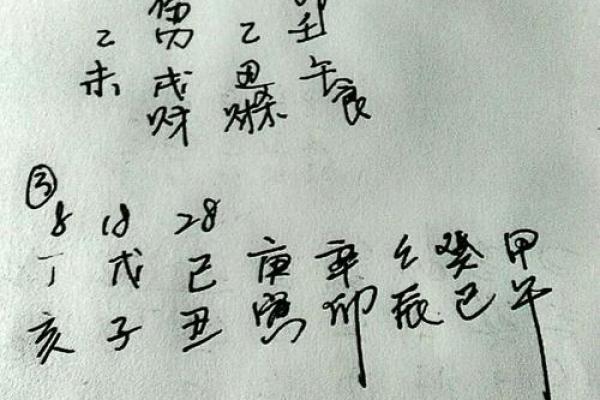 乙 乙 壬
未 戌 丑 午
财 财杀 食
③
8 18 28
丁 戊 己 庚 辛 壬 癸 甲
亥 子 丑 寅 卯 辰 巳 午